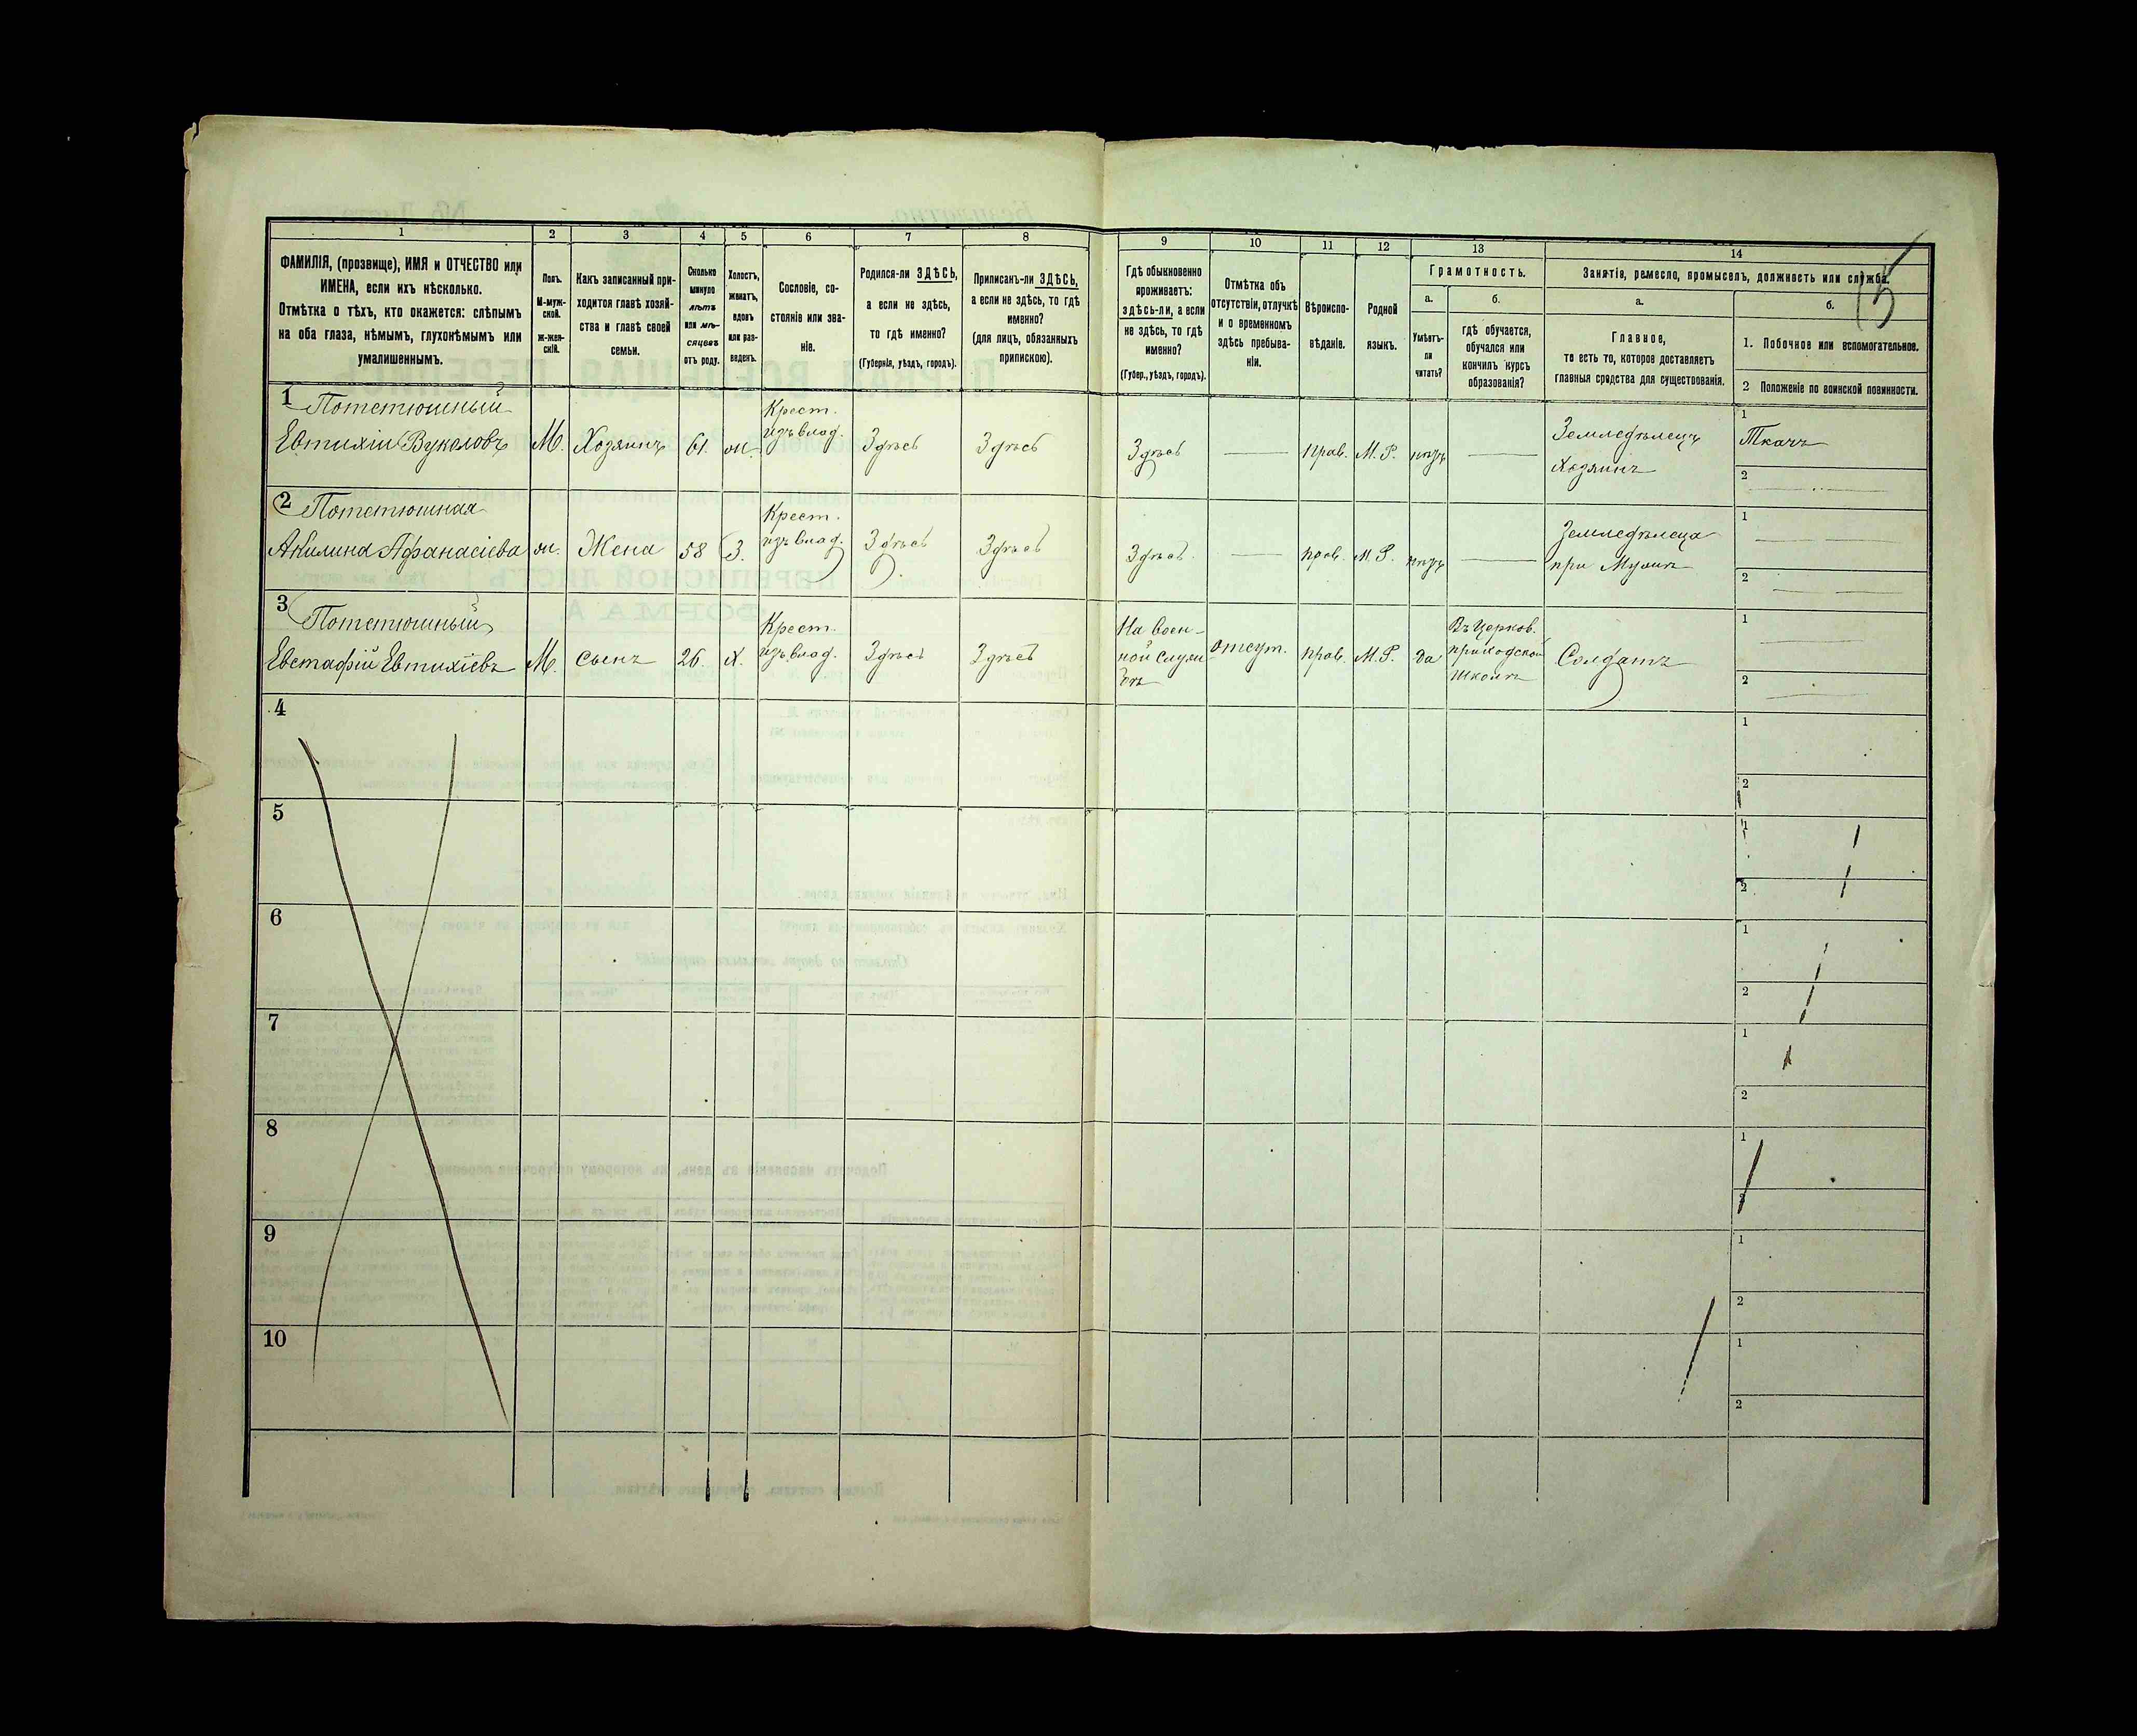 1 2 3 4 5 6 7 8 9 10 11 12 13 14
ФАМИЛІЯ, (прозвище), ИМЯ и ОТЧЕСТВО или
ИМЕНА, если ихъ нѣсколько.
Отмѣтка о тѣхъ, кто окажется: слѣпымъ
на оба глаза, нѣмымъ, глухонѣмымъ или
умалишеннымъ.
Полъ.
М-муж-
ской.
ж-жен-
скій.
Какъ записанный при-
ходится главѣ хозяй-
ства и главѣ своей
семьи.
Сколько
минуло
лѣтъ
или мѣ-
сяцевъ
отъ роду.
Холостъ,
женатъ,
вдовъ
или раз-
веденъ.
Сословіе, со-
стояніе или зва-
ніе.
Родился-ли ЗДѢСЬ,
а если не здѣсь,
то гдѣ именно?
(Губернія, уѣздъ, городъ).
Приписанъ-ли ЗДѢСЬ,
а если не здѣсь, то гдѣ
именно?
(для лицъ, обязанныхъ
припискою).
Гдѣ обыкновенно
проживаетъ:
здѣсь-ли, а если
не здѣсь, то гдѣ
именно?
(Губер., уѣздъ, городъ).
Отмѣтка объ
отсутствіи, отлучкѣ
и о временномъ
здѣсь пребыва-
ніи.
Вѣроиспо-
вѣданіе.
Родной
языкъ.
Грамотность.
а.
Умѣетъ-
ли
читать?
б.
гдѣ обучается,
обучался или
кончилъ курсъ
образованія?
Занятіе, ремесло, промыселъ, должность или служба.
а.
Главное,
то есть то, которое доставляетъ
главныя средства для существованія.
б.
1. Побочное или вспомогательное.
2 Положеніе по воинской повинности.
1 Потетюшный
Евтихій Вуколовъ
М.
Хозяинъ
61.
ж.
Крест.
изъ влад.
Здѣсь
Здѣсь
Здѣсь
прав.
М. Р.
нѣтъ
Земледѣлецъ
Хозяинъ
1
Ткачъ
2
2 Потетюшная
Акилина Афанасіева
ж.
Жена
58
З.
Крест.
изъ влад.
Здѣсь
Здѣсь
Здѣсь
прав.
М. Р.
нѣтъ
Земледѣлеца
при Мужѣ
1
2
3 Потетюшный
Евстафій Евтихіевъ
М.
сынъ
26.
х.
Крест.
изъ влад.
Здѣсь
Здѣсь
На воен-
ной служ
бѣ
отсут.
прав.
М. Р.
да
Въ Церков.
приходской
школѣ
Солдатъ
1
2
4
1
2
5
1
2
6
1
2
7
1
2
8
1
2
9
1
2
10
1
2